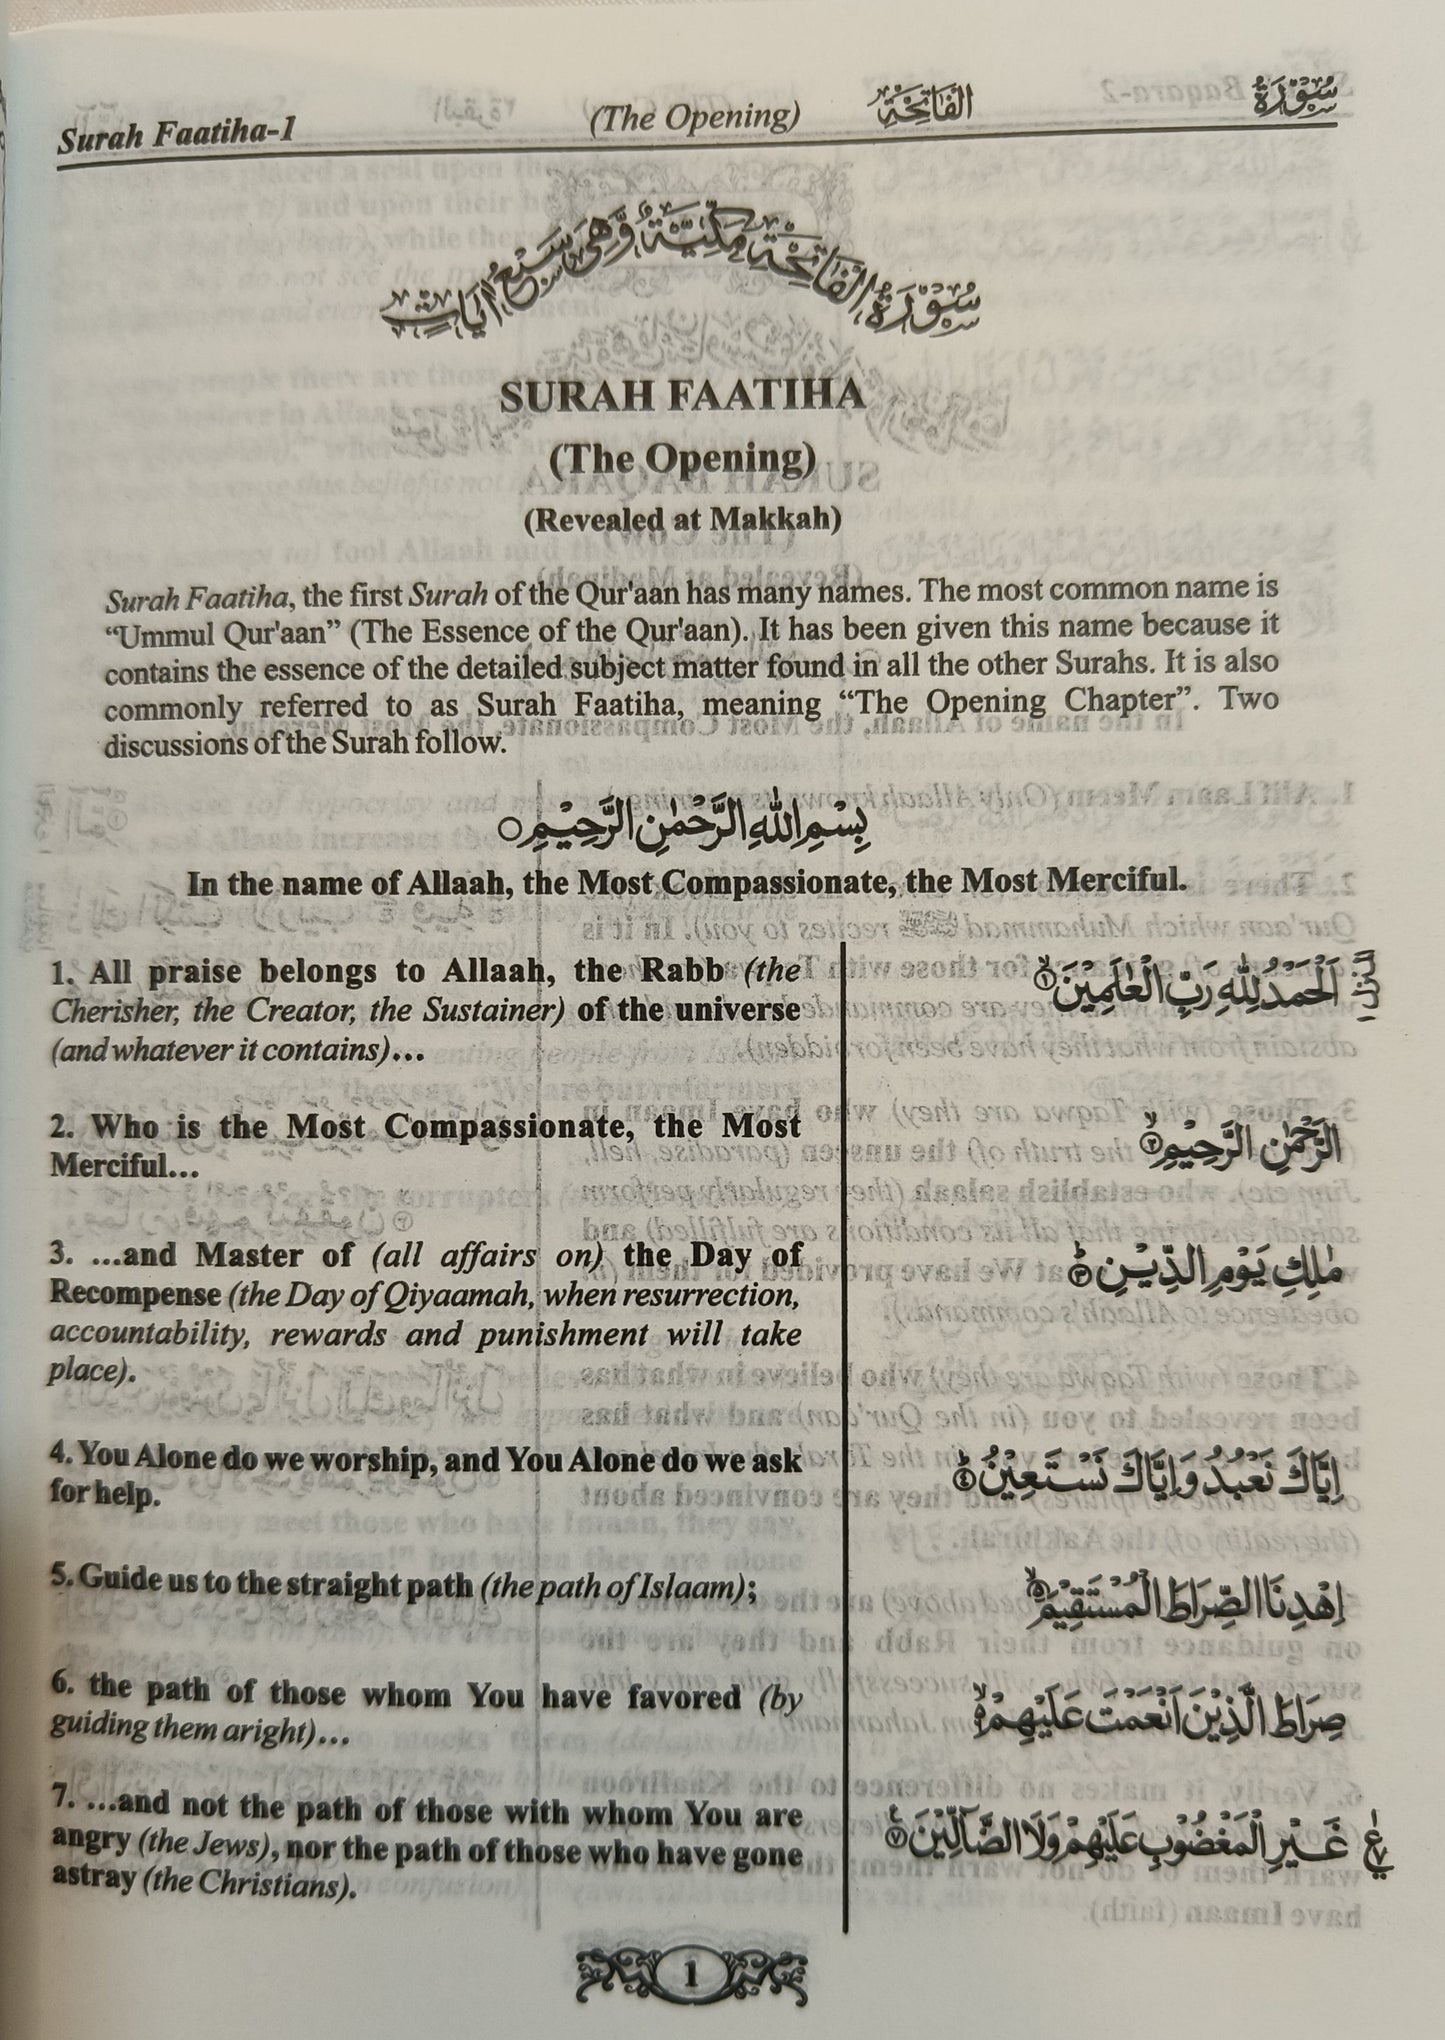 Surah Faatiha-1 (The Opening) الفَاتِحَة سُوْرَةُ
سُوْرَةُ الْفَاتِحَةِ مَكِّيَّةٌ وَّهِيَ سَبْعُ اٰيَاتٍ
SURAH FAATIHA
(The Opening)
(Revealed at Makkah)
Surah Faatiha, the first Surah of the Qur'aan has many names. The most common name is
“Ummul Qur'aan” (The Essence of the Qur'aan). It has been given this name because it
contains the essence of the detailed subject matter found in all the other Surahs. It is also
commonly referred to as Surah Faatiha, meaning “The Opening Chapter”. Two
discussions of the Surah follow.
بِسْمِ اللّٰهِ الرَّحْمٰنِ الرَّحِيْمِ
In the name of Allaah, the Most Compassionate, the Most Merciful.
1. All praise belongs to Allaah, the Rabb (the
Cherisher, the Creator, the Sustainer) of the universe
(and whatever it contains)…
اَلْحَمْدُ لِلّٰهِ رَبِّ الْعٰلَمِيْنَ ۙ﴿۱﴾
2. Who is the Most Compassionate, the Most
Merciful...
الرَّحْمٰنِ الرَّحِيْمِ ۙ﴿۲﴾
3. ...and Master of (all affairs on) the Day of
Recompense (the Day of Qiyaamah, when resurrection,
accountability, rewards and punishment will take
place).
مٰلِكِ يَوْمِ الدِّيْنِ ؕ﴿۳﴾
4. You Alone do we worship, and You Alone do we ask
for help.
اِيَّاكَ نَعْبُدُ وَاِيَّاكَ نَسْتَعِيْنُ ؕ﴿۴﴾
5. Guide us to the straight path (the path of Islaam);
اِهْدِنَا الصِّرَاطَ الْمُسْتَقِيْمَ ۙ﴿۵﴾
6. the path of those whom You have favored (by
guiding them aright)…
صِرَاطَ الَّذِيْنَ اَنْعَمْتَ عَلَيْهِمْ ۙ﴿۶﴾
7. ...and not the path of those with whom You are
angry (the Jews), nor the path of those who have gone
astray (the Christians).
غَيْرِ الْمَغْضُوْبِ عَلَيْهِمْ وَلَا الضَّآلِّيْنَ ﴿۷﴾
1